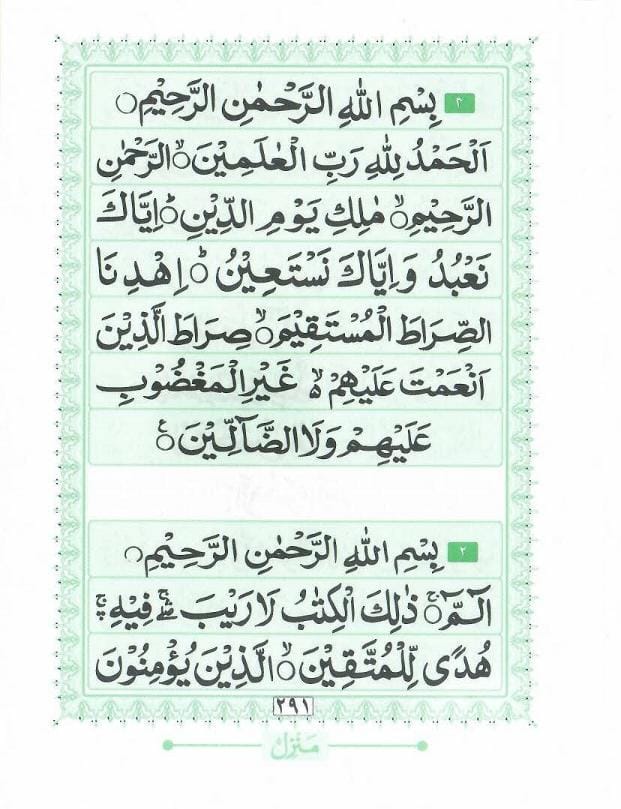 ۴ بِسْمِ اللهِ الرَّحْمٰنِ الرَّحِيْمِ○
اَلْحَمْدُ لِلّٰهِ رَبِّ الْعٰلَمِيْنَ○ۙ الرَّحْمٰنِ
الرَّحِيْمِ○ۙ مٰلِكِ يَوْمِ الدِّيْنِ○ؕ اِيَّاكَ
نَعْبُدُ وَاِيَّاكَ نَسْتَعِيْنُ○ؕ اِهْدِنَا
الصِّرَاطَ الْمُسْتَقِيْمَ○ۙ صِرَاطَ الَّذِيْنَ
اَنْعَمْتَ عَلَيْهِمْ ۙ۬ غَيْرِ الْمَغْضُوْبِ
عَلَيْهِمْ وَلَا الضَّآلِّيْنَ○
۲ بِسْمِ اللهِ الرَّحْمٰنِ الرَّحِيْمِ○
الٓمّٓ○ۚ ذٰلِكَ الْكِتٰبُ لَا رَيْبَ ۛۖۚ فِيْهِ ۛۚ
هُدًى لِّلْمُتَّقِيْنَ○ۙ الَّذِيْنَ يُؤْمِنُوْنَ
۲۹۱
مَنْزِل